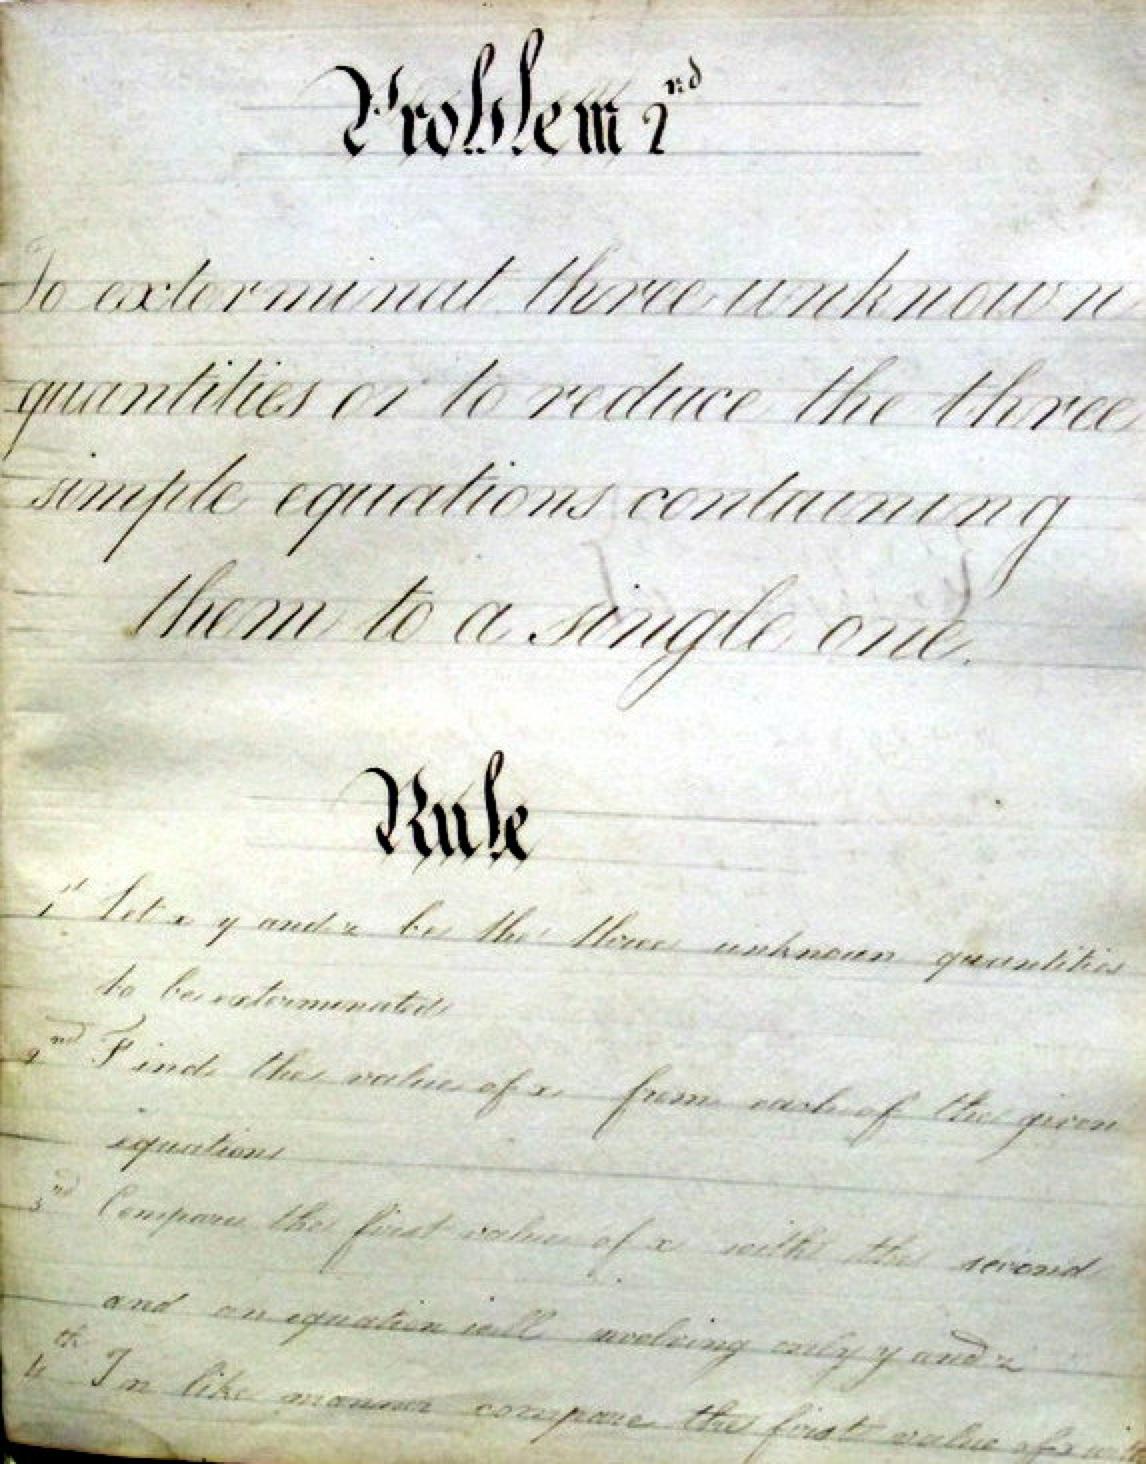 Problem 2nd
To exterminat three unknown
quantities or to reduce the three
simple equations containing
them to a single one.
Rule
1st Let x y and z be the three unknown quantities
to be exterminated
2nd Find the value of x from each of the given
equations
3rd Compare the first value of x with the second
and an equation will involving only y and z
4th In like manner compare the first value of x with